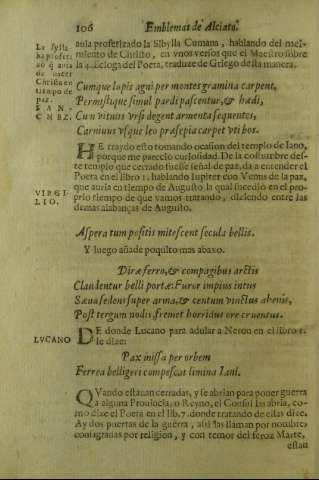 106 Emblemas de Alciato.
auia profetizado la Sibylla Cumana, hablando del naci-
miento de Christo, en vnos versos que el Maestro sobre
la 4. Ecloga del Poeta, traduze de Griego desta manera.
La sylla
ha profeti
zo q̃ auia
de nacer
Christo en
tiempo de
paz.
SAN-
CHEZ.
Cumque lupis agni per montes gramina carpent,
Permistique simul pardi pascentur, & hædi,
Cum vitulis vrsi degent armenta sequentes,
Carniuus vsque leo præsepia carpet vti bos.
HE traydo esto tomando ocasion del templo de Iano,
porque me parecio curiosidad. De la costumbre des-
te templo que cerrado fuesse señal de paz, da a entender el
Poeta en el libro 1. hablando Iupiter con Venus de la paz,
que auria en tiempo de Augusto la qual sucedió en el pro-
prio tiempo de que vamos tratando, diziendo entre las
demas alabanças de Augusto.
VIRGI-
LIO.
Aspera tum positis mitescent secula bellis.
Y luego añade poquito mas abaxo.
Diræ ferro, & compagibus arctis
Claudentur belli portæ: Furor impius intus
Sæua sedens super arma, & centum vinctus ahenis,
Post tergum nodis, fremet horridus ore cruentus.
LVCANO
DE donde Lucano para adular a Neron en el libro 1.
le dize:
Pax missa per orbem
Ferrea belligeri compescat limina Iani.
QVando estauan cerradas, y se abrian para poner guerra
a alguna Prouincia, o Reyno, el Consul las abria, co-
mo dize el Poeta en el lib. 7. donde tratando de estas dize.
Ay dos puertas de la guerra, assi las llaman por nombre,
consagradas por religion, y con temor del feroz Marte,
estan